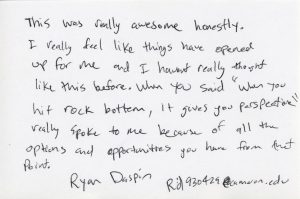 This was really awesome honestly.
I really feel like things have opened
up for me and I havent really thought
like this before. When you said "when you
hit rock bottom, it gives you perspective"
really spoke to me because of all the
options and opportunities you have from that
Point.
Ryan Daspin